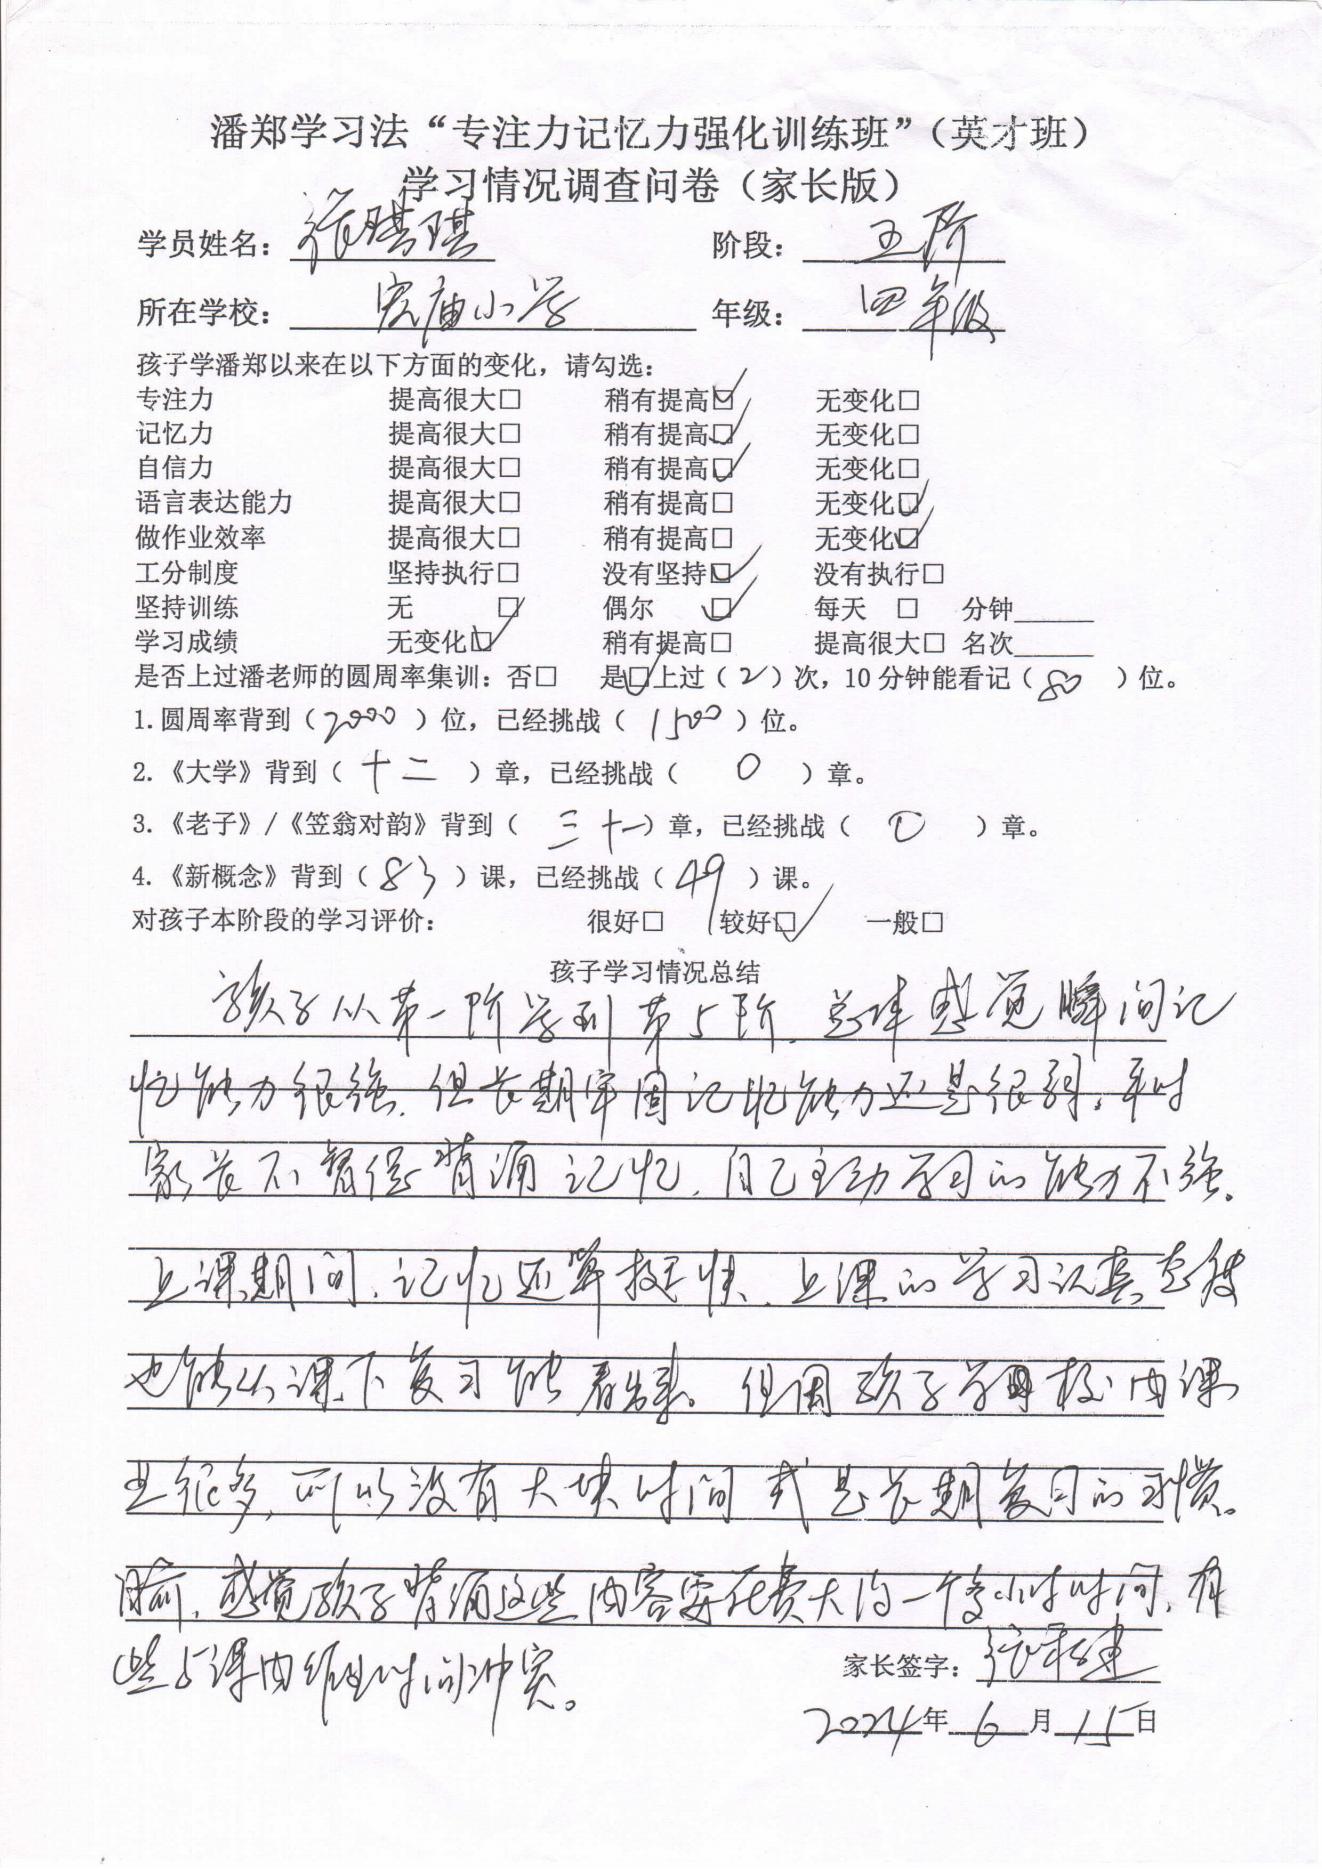 潘郑学习法“专注力记忆力强化训练班”（英才班）
学习情况调查问卷（家长版）
学员姓名：张琪琪 阶段：五阶
所在学校：庙小学 年级：四年级
孩子学潘郑以来在以下方面的变化，请勾选：
专注力 提高很大□ 稍有提高☑ 无变化□
记忆力 提高很大□ 稍有提高☑ 无变化□
自信力 提高很大□ 稍有提高☑ 无变化□
语言表达能力 提高很大□ 稍有提高□ 无变化☑
做作业效率 提高很大□ 稍有提高□ 无变化☑
工分制度 坚持执行□ 没有坚持☑ 没有执行□
坚持训练 无 ☑ 偶尔 ☑ 每天 □ 分钟______
学习成绩 无变化☑ 稍有提高□ 提高很大□ 名次______
是否上过潘老师的圆周率集训：否□ 是☑上过（2）次，10分钟能看记（80）位。
1.圆周率背到（2000）位，已经挑战（1500）位。
2.《大学》背到（十二）章，已经挑战（0）章。
3.《老子》/《笠翁对韵》背到（三十一）章，已经挑战（0）章。
4.《新概念》背到（83）课，已经挑战（49）课。
对孩子本阶段的学习评价： 很好□ 较好☑ 一般□
孩子学习情况总结
孩子从第一阶学到第5阶，总体感觉瞬间记
忆能力很强，但长期牢固记忆能力还是很弱。平时
家长不督促背诵记忆，自己主动学习的能力不强。
上课期间，记忆还算挺快，上课的学习认真态度
也能从课下复习能看出来。但因孩子学校内课
业很多，所以没有大块时间或是长期复习的习惯。
目前，感觉孩子背诵这些内容要花费大约一个多小时时间，有
些与课内作业时间冲突。
家长签字：张建
2024年6月15日